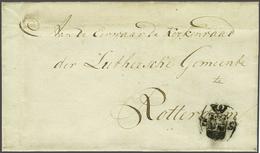 Aan de Eerwaarde Kerkenraad
der Luthersche Gemeente
te
Rotterdam